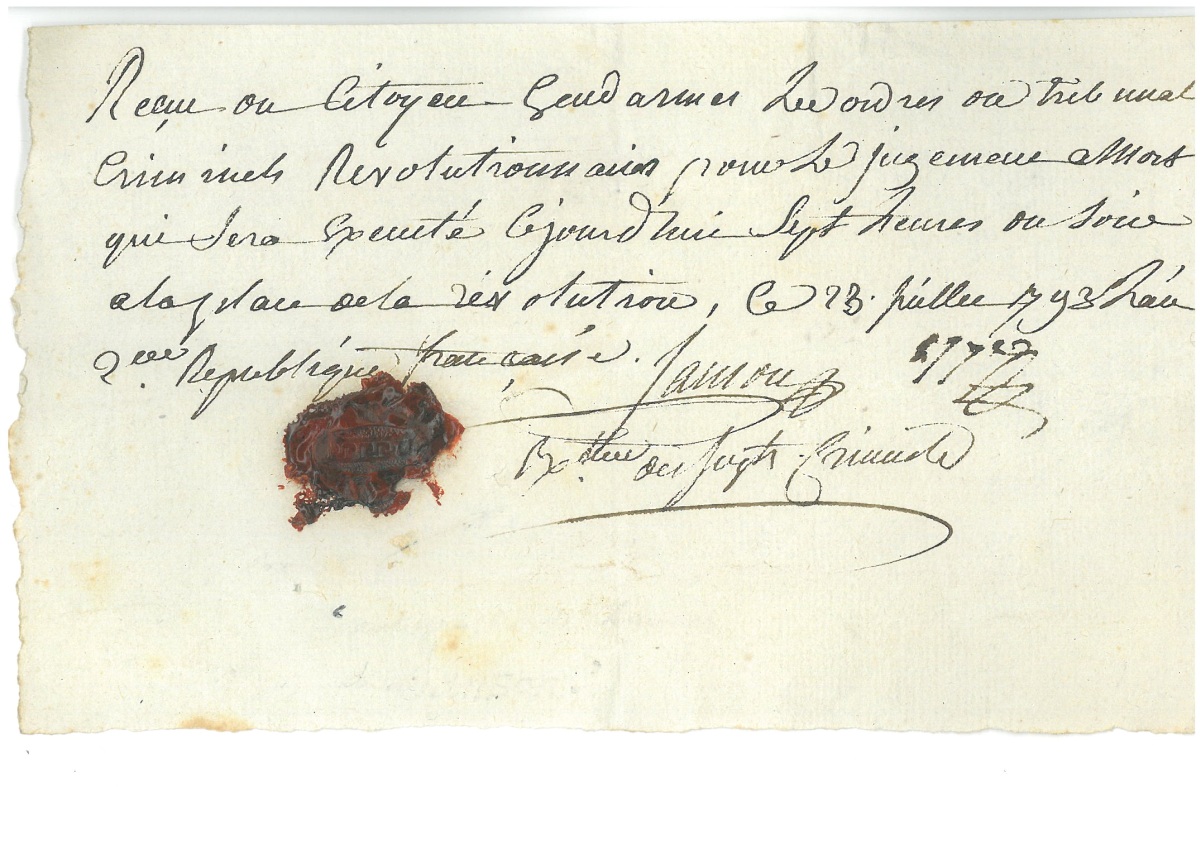 Reçu du Citoyen Gendarmes Les ordres du tribunal
Criminels Revolutionnaires pour Le jugement a Mort
qui Sera Executé Cejourd'hui Sept heures du Soir
a la place de la révolution, Ce 23. juillet 1793 L'an
2eme. Republique française.
Sanson
Exteur des Jugts Criminels